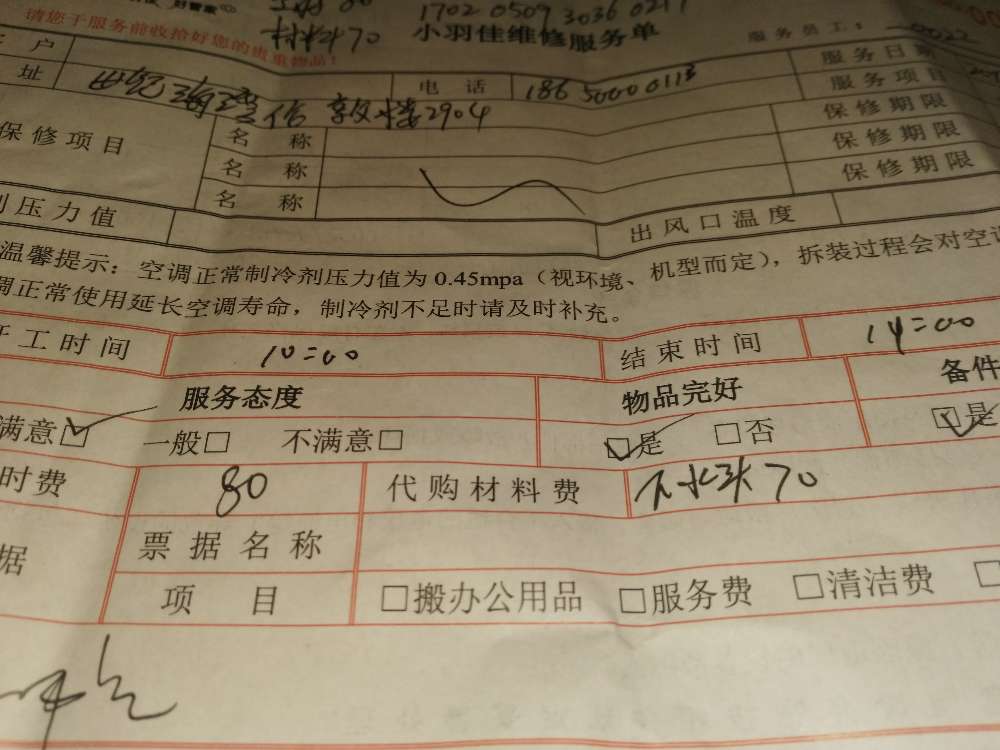 好管家
80
1702 0509 3036 0217
请您于服务前收拾好您的贵重物品！
材料 70
小羽佳维修服务单
服务员工：
户
服务日期
址
世纪海景信敦楼2904
电话
186 5000 0113
服务项目
保修项目
名称
保修期限
名称
保修期限
名称
保修期限
压力值
出风口温度
温馨提示：空调正常制冷剂压力值为 0.45mpa（视环境、机型而定），拆装过程会对空调
调正常使用延长空调寿命，制冷剂不足时请及时补充。
工时间
10=00
结束时间
14=00
服务态度
物品完好
备件
满意☑ 一般□ 不满意□
☑是 □否
☑是
时费
80
代购材料费
下水头 70
据
票据名称
项目
□搬办公用品 □服务费 □清洁费